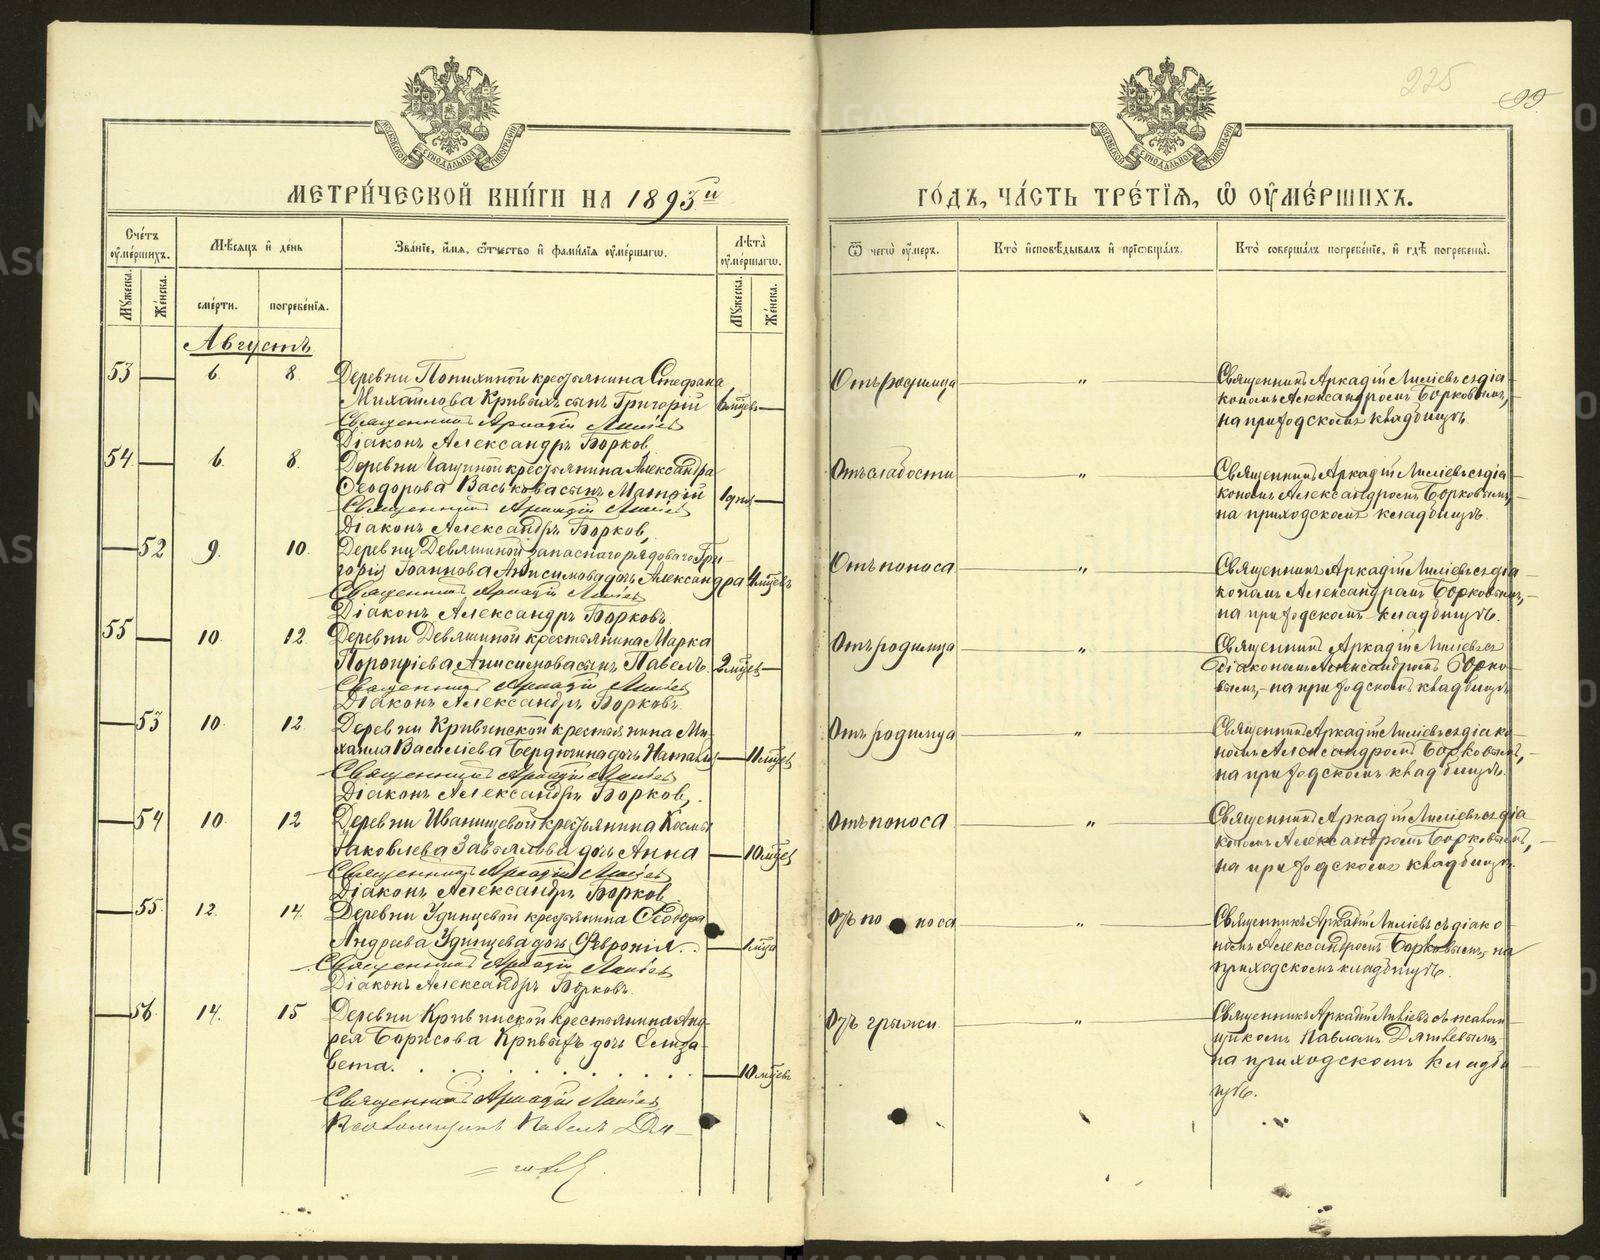 225
99
МОСКОВСКОЙ СѴНОДАЛЬНОЙ ТИПОГРАФІИ
МОСКОВСКОЙ СѴНОДАЛЬНОЙ ТИПОГРАФІИ
МЕТРИ́ЧЕСКОЙ КНИ́ГИ НА 1893й
ГО́ДЪ, ЧА́СТЬ ТРЕ́ТІѦ, Ѡ ОУМЕ́РШИХЪ.
Сче́тъ оуме́ршихъ.
Мужеска.
Же́нска.
Мѣсяцъ и день
сме́рти.
погребе́нія.
Зва́ніе, и́мя, ѻ́тчество и фами́лія оуме́ршагѡ.
Лѣта̀ оуме́ршагѡ.
Мужеска.
Же́нска.
Ѿ чегѡ̀ оу́меръ.
Кто̀ исповѣ́дывалъ и прїѡбща́лъ.
Кто̀ соверша́лъ погребе́ніе, и гдѣ̀ погребены̀.
Августъ
53 — 6. 8.
Деревни Попихиной крестьянина Стефана
Михаилова Кривыхъ сынъ Григорій 6 мцевъ —
Священникъ Аркадій Лиліевъ
Діаконъ Александръ Борковъ
Отъ родимца
"
Священникъ Аркадій Лиліевъ съ діа
кономъ Александромъ Борковымъ,
на приходскомъ кладбищѣ.
54 — 6. 8.
крестьянина Александра
Ѳеодорова Васькова сынъ Матѳій 1 дня —
Священникъ Аркадій Лиліевъ
Діаконъ Александръ Борковъ
Отъ слабости
"
Священникъ Аркадій Лиліевъ съ діа
кономъ Александромъ Борковымъ,
на приходскомъ кладбищѣ.
— 52 9. 10.
Деревни Девяшиной запаснаго рядоваго Гри-
горія Іоаннова Анисимова дочь Александра 4 мцевъ
Священникъ Аркадій Лиліевъ
Діаконъ Александръ Борковъ
Отъ поноса
"
Священникъ Аркадій Лиліевъ съ діа
кономъ Александромъ Борковымъ,
на приходскомъ кладбищѣ.
55 — 10. 12
Деревни Девяшиной крестьянина Марка
Порфиріева Анисимова сынъ Павелъ. 2 мцевъ —
Священникъ Аркадій Лиліевъ
Діаконъ Александръ Борковъ.
Отъ родимца
"
Священникъ Аркадій Лиліевъ съ
діакономъ Александромъ Борко-
вымъ, на приходскомъ кладбищѣ
— 53 10. 12
Деревни Кривинской крестьянина Ми-
хаила Василіева Бердюгина дочь Наталія — 11 мцевъ
Священникъ Аркадій Лиліевъ
Діаконъ Александръ Борковъ.
Отъ родимца
"
Священникъ Аркадій Лиліевъ съ діако
номъ Александромъ Борковымъ,
на приходскомъ кладбищѣ.
— 54 10. 12
Деревни Иванищевой крестьянина Космы
Іаковлева Завьялова дочь Анна — 10 мцевъ
Священникъ Аркадій Лиліевъ
Діаконъ Александръ Борковъ
Отъ поноса
"
Священникъ Аркадій Лиліевъ съ діа
кономъ Александромъ Борковымъ,
на приходскомъ кладбищѣ.
— 55. 12. 14.
Деревни Удинцевой крестьянина Ѳеодора
Андреева Удинцева дочь Февронія. — 1 мца
Священникъ Аркадій Лиліевъ
Діаконъ Александръ Борковъ.
Отъ поноса
"
Священникъ Аркадій Лиліевъ съ діако
номъ Александромъ Борковымъ, на
приходскомъ кладбищѣ.
— 56. 14. 15
Деревни Кривинской крестьянина Анд-
рея Борисова Кривыхъ дочь Елиза-
вета. — 10 мцевъ
Священникъ Аркадій Лиліевъ
Псаломщикъ Павелъ Дяг-
Отъ грыжи.
"
Священникъ Аркадій Лиліевъ съ псалом
щикомъ Павломъ
на приходскомъ кладби
щѣ.
METRIKI.GASO-URAL.RU